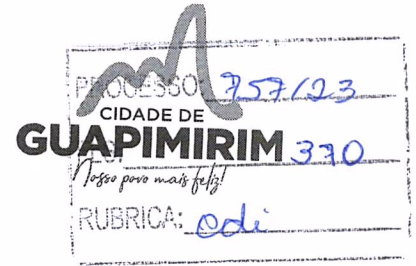 PROCESSO: 757/23
CIDADE DE
GUAPIMIRIM 370
Nosso povo mais feliz!
RUBRICA: Odi